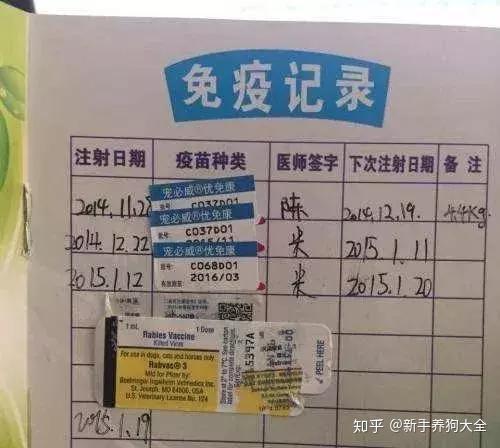 免疫记录
注射日期 疫苗种类 医师签字 下次注射日期 备注
宠必威®优免康
2014.11.28 批号: C037D01 陈 2014.12.19. 4.4kg
宠必威®优免康
2014.12.22 批号: C037D01 米 2015.1.11
宠必威®优免康
2015.1.12 批号: C068D01 米 2015.1.20
有效期至: 2016/03
1 mL 1 Dose
Rabies Vaccine
Killed Virus
For use in dogs, cats and horses only.
Rabvac® 3
Mfd for Pfizer by:
Boehringer Ingelheim Vetmedica Inc.
St. Joseph, MO 64506, USA
U.S. Veterinary License No. 124
PEEL HERE
2015.1.19
知乎 @新手养狗大全